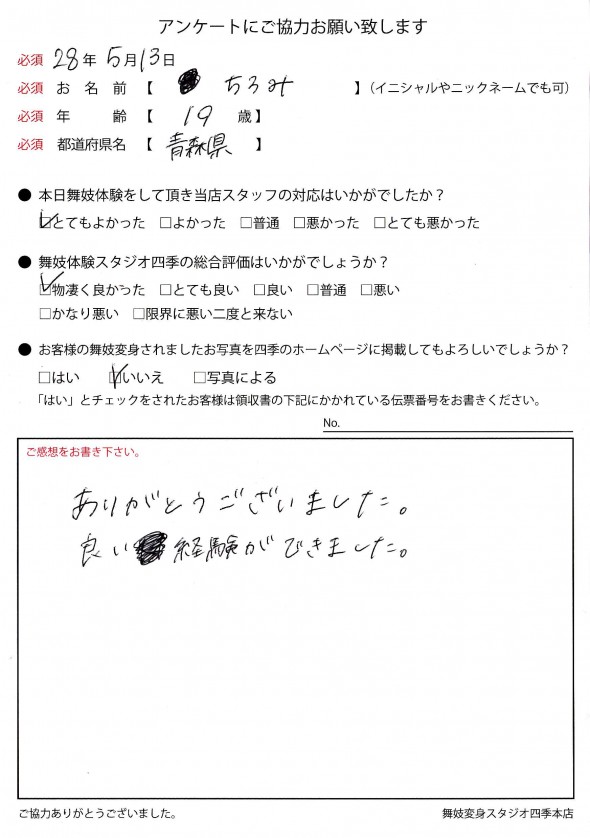 アンケートにご協力お願い致します
必須 28年 5月13日
必須 お名前【 ちろみ 】(イニシャルやニックネームでも可)
必須 年齢【 19 歳】
必須 都道府県名【 青森県 】
● 本日舞妓体験をして頂き当店スタッフの対応はいかがでしたか?
☑とてもよかった □よかった □普通 □悪かった □とても悪かった
● 舞妓体験スタジオ四季の総合評価はいかがでしょうか?
☑物凄く良かった □とても良い □良い □普通 □悪い
□かなり悪い □限界に悪い二度と来ない
● お客様の舞妓変身されましたお写真を四季のホームページに掲載してもよろしいでしょうか?
□はい ☑いいえ □写真による
「はい」とチェックをされたお客様は領収書の下記にかかれている伝票番号をお書きください。
No.
ご感想をお書き下さい。
ありがとうございました。
良い経験ができました。
ご協力ありがとうございました。
舞妓変身スタジオ四季本店